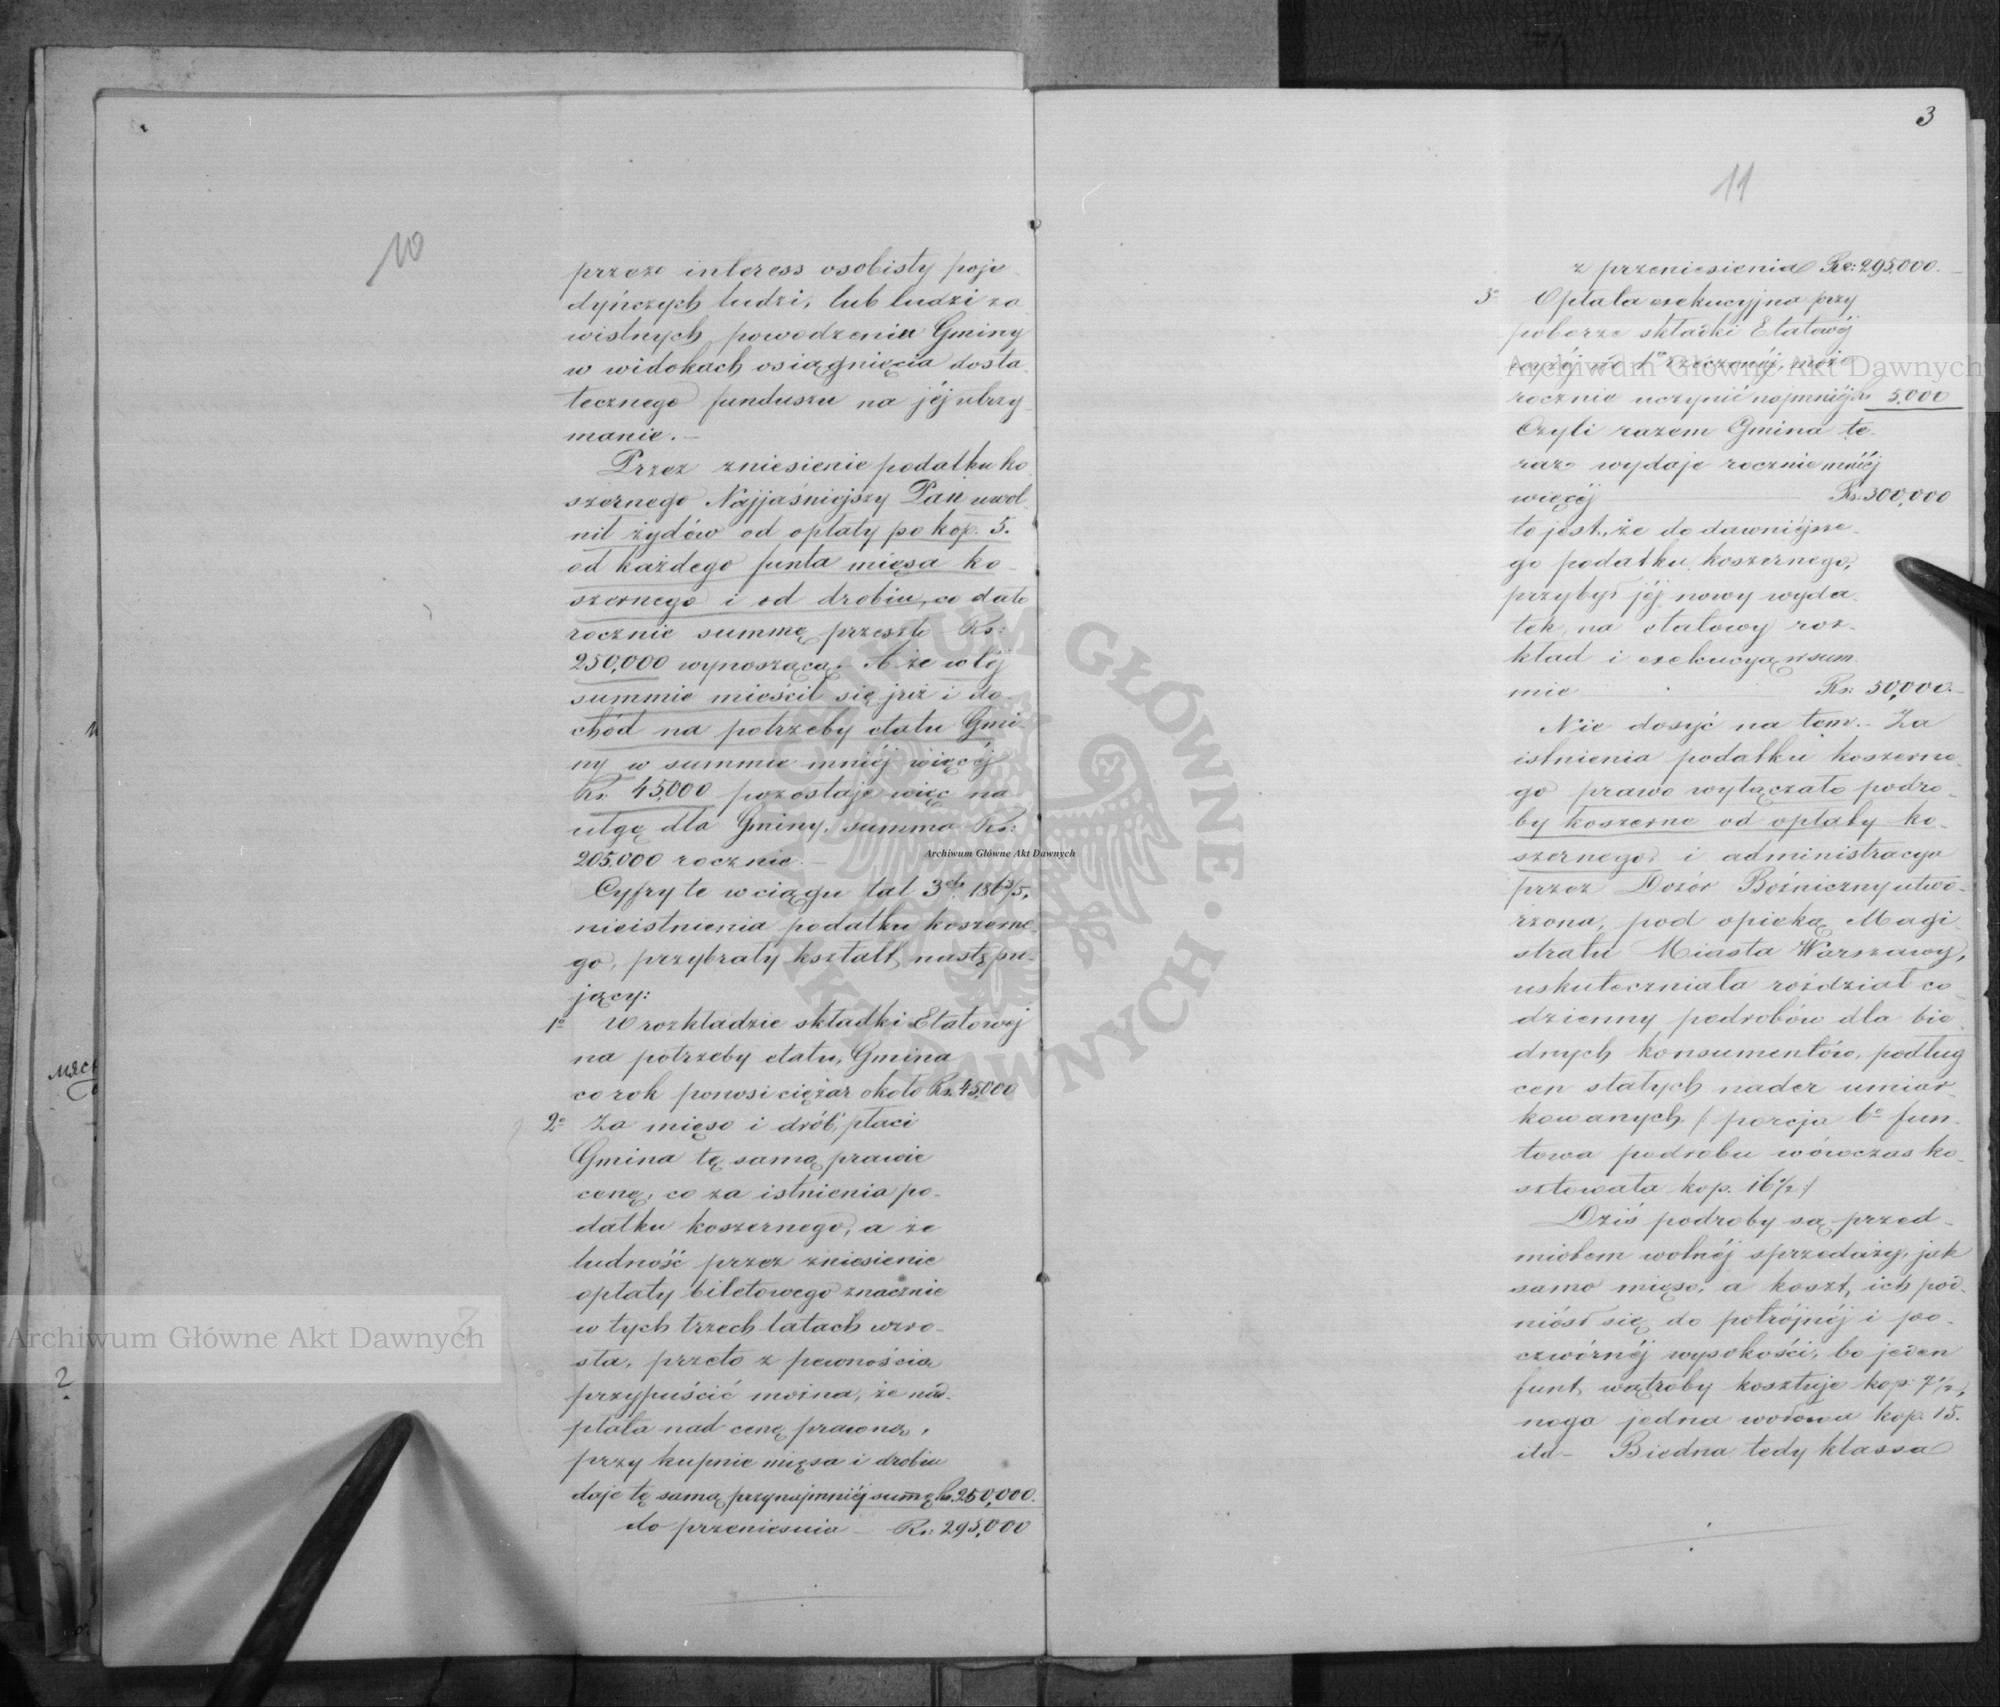 10
przezo interess osobisty poje
dyńczych ludzi, lub ludzi za
wistnych powodzeniu Gminy
w widokach osiągnięcia dosta
tecznego funduszu na jéj utrzy
manie.—
Przez zniesienie podatku ko
szernego Najjaśniejszy Pan uwol
nił żydów od opłaty po kop. 5.
od każdego funta mięsa ko
szernego i od drobiu, co dało
rocznie summę przeszło Rs:
250,000 wynoszącą.— A że w téj
summie mieścił się już i do-
chód na potrzeby etatu Gmi-
ny w summie mniéj więcéj
Rs. 45,000 pozostaje więc na
ulgę dla Gminy, summa Rs:
205,000 rocznie.—
Cyfry te w ciągu lat 3ch 1863/5,
nieistnienia podatku koszerne
go, przybrały kształt następu-
jący:
1o W rozkładzie składki Etatowéj
na potrzeby etatu, Gmina
co rok ponosi ciężar około Rs. 45,000
2o Za mięso i drób, płaci
Gmina tę samą prawie
cenę, co za istnienia po-
datku koszernego, a że
ludność przez zniesienie
opłaty biletowego znacznie
w tych trzech latach wzro-
sła, przeto z pewnością
przypuścić można, że nad-
płata nad cenę prawną,
przy kupnie mięsa i drobiu
daje tę samą przynajmniéj summę Rs. 250,000.
do przeniesnia — Rs: 295,000
3
11
z przeniesienia Rs: 295,000.—
3o Opłata exekucyjna przy
poborze składki Etatowéj
wyżéj ad 1o rzeczonéj, może
rocznie uczynić najmniéj Rs 5,000
Czyli razem Gmina te-
raz wydaje rocznie mniéj
więcéj Rs. 300,000
to jest, że do dawniéjsze-
go podatku koszernego,
przybył jéj nowy wyda-
tek, na etatowy roz-
kład i exekucyą w sum
mie Rs: 50,000.—
Nie dosyć na tem.— Za
istnienia podatku koszerne-
go prawo wyłączało podro-
by koszerne od opłaty ko-
szernego, i administracya
przez Dozór Bożniczny utwo-
rzona, pod opieką Magi
stratu Miasta Warszawy,
uskuteczniała rozdział co-
dzienny podrobów dla bie-
dnych konsumentów, podług
cen stałych nader umiar-
kowanych /: porcja 6o fun-
towa podrobu wówczas ko-
sztowała kop. 16 1/2 :/
Dziś podroby są przed-
miotem wolnéj sprzedaży, jak
samo mięso, a koszt ich pod-
niósł się do potrójnéj i po-
czwórnéj wysokości, bo jeden
funt wątroby kosztuje kop. 7 1/2,
noga jedna wołowa kop. 15.
itd— Biedna tedy klassa
Archiwum Główne Akt Dawnych
Archiwum Główne Akt Dawnych
Archiwum Główne Akt Dawnych